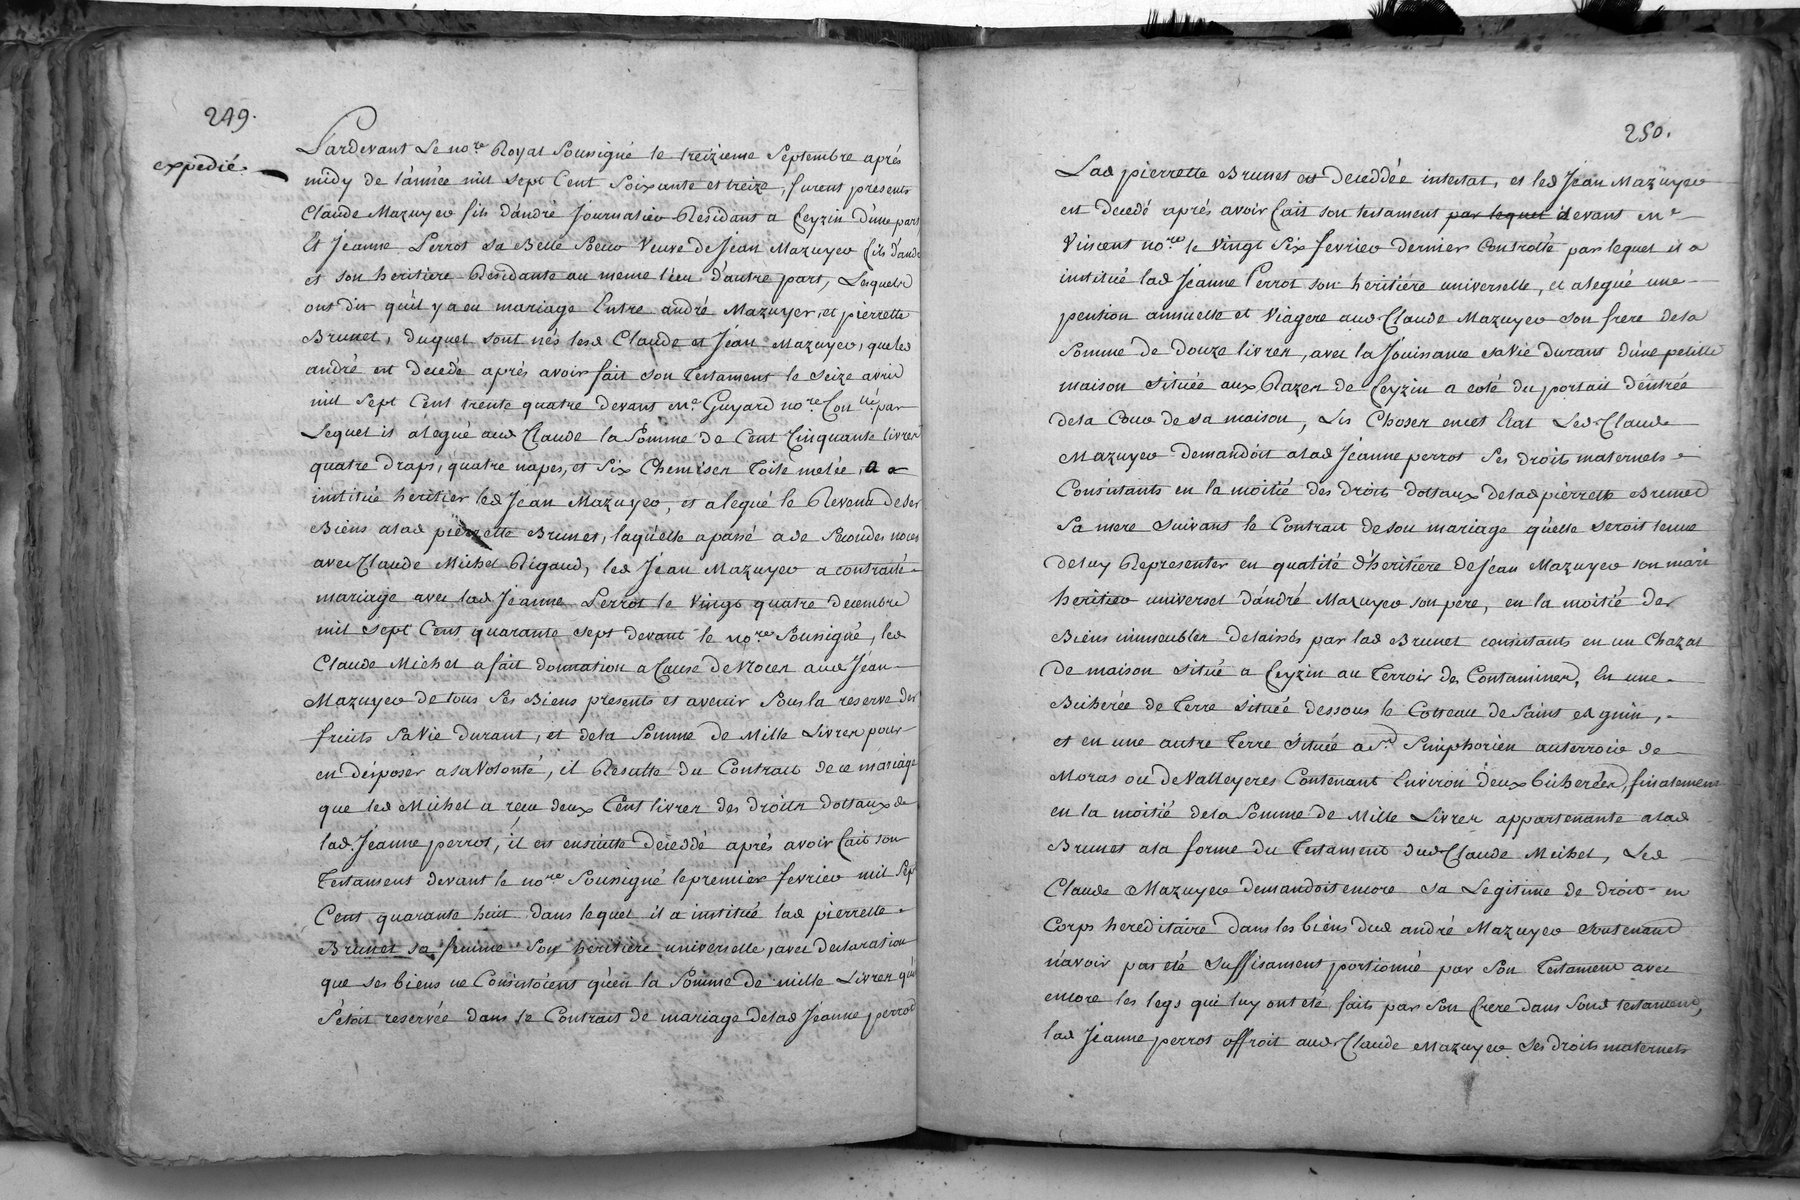 249.
expedié.
Pardevant Le no.re Royal Soussigné le treizieme Septembre aprés
midy de l'année mil sept Cent Soixante et treize, furent presents
Claude Mazuyer fils d'andré Journalier Residant a Ceyzin D'une part
Et Jeanne Perrot sa Belle Soeur Veuve de Jean Mazuyer fils d'andré
et son heritiere Residante au meme lieu d'autre part, Lesquels
ont dit qu'il y a eu mariage Entre andré Mazuyer, et pierrette
Brunet, duquel sont nés lesd Claude et Jean Mazuyer, que led
andré est decedé aprés avoir fait son Testament le seize avril
mil sept Cent trente quatre devant M.e Guyard no.re Con.llé par
Lequel il a legué aud Claude la Somme de Cent Cinquante livres
quatre draps, quatre napes, et Six Chemises Toile melée, a
institué heritier led Jean Mazuyer, et a legué le Revenu de ses
Biens a lad pierrette Brunet, laquelle a passé a de Secondes noces
avec Claude Michel Rigaud, led Jean Mazuyer a contracté
mariage avec lad Jeanne Perrot le Vingt quatre decembre
mil sept Cent quarante sept devant le no.re Soussigné, led
Claude Michel a fait donnation a Cause de Noces aud Jean
Mazuyer de tous Ses Biens presents et avenir Sous la reserve des
fruits Sa Vie durant, et de la Somme de Mille Livres pour
en disposer a sa Volonté, il Resulte du Contract de ce mariage
que led Michel a reçu deux Cent livres des droits dottaux de
lad. Jeanne perrot, il est ensuitte décedé aprés avoir fait son
Testament devant le no.re Soussigné le premier fevrier mil Sept
Cent quarante huit dans lequel il a institué lad pierrette
Brunet sa femme Son heritiere universelle, avec declaration
que ses biens ne Consistoient qu'en la Somme de mille Livres qu'il
s'étoit reservée dans le Contrait de mariage de lad Jeanne perrot
250.
Lad pierrette Brunet est deceddée intestat, et led Jean Mazuyer
est decedé aprés avoir fait son testament par lequel il devant M.e
Vincent no.re le Vingt Six fevrier dernier Controllé par lequel il a
institué lad Jeanne Perrot son heritiére universelle, et a legué une
pension annuelle et Viagere aud Claude Mazuyer son frere de la
Somme de douze livres, avec la Jouissance sa Vie durant d'une petitte
maison située aux Razes de Ceyzin a coté du portail d'entrée
de la Cour de sa maison, Les Choses en cet Etat Led Claude
Mazuyer demandoit a lad Jeanne perrot Ses droits maternels
Consistants en la moitié des droits dottaux de lad pierrette Brunet
Sa mere Suivant le Contrait de son mariage qu'elle seroit tenue
de luy Representer en qualité d'heritiére de Jean Mazuyer son mari
heritier universel d'andré Mazuyer son pere, en la moitié des
Biens immeubles delaissés par lad Brunet consistants en un Chazal
de maison situé a Ceyzin au Terroir des Contamines, En une
Bicherée de Terre située dessous le Cotteau de Saint Agnin,
et en une autre Terre située a S.t Simphorien au terroir de
Moras ou de Valleyeres Contenant Environ deux bicherées, finalement
en la moitié de la Somme de Mille Livres appartenante a lad
Brunet a la forme du Testament dud Claude Michel, Led
Claude Mazuyer demandoit encore sa Legitime de droit en
Corps hereditaire dans les biens dud andré Mazuyer Soutenant
n'avoir pas eté suffisament portionné par Son Testament avec
encore les legs qui luy ont eté faits par Son frere dans Sond testament,
lad Jeanne perrot offroit aud Claude Mazuyer Ses droits maternels